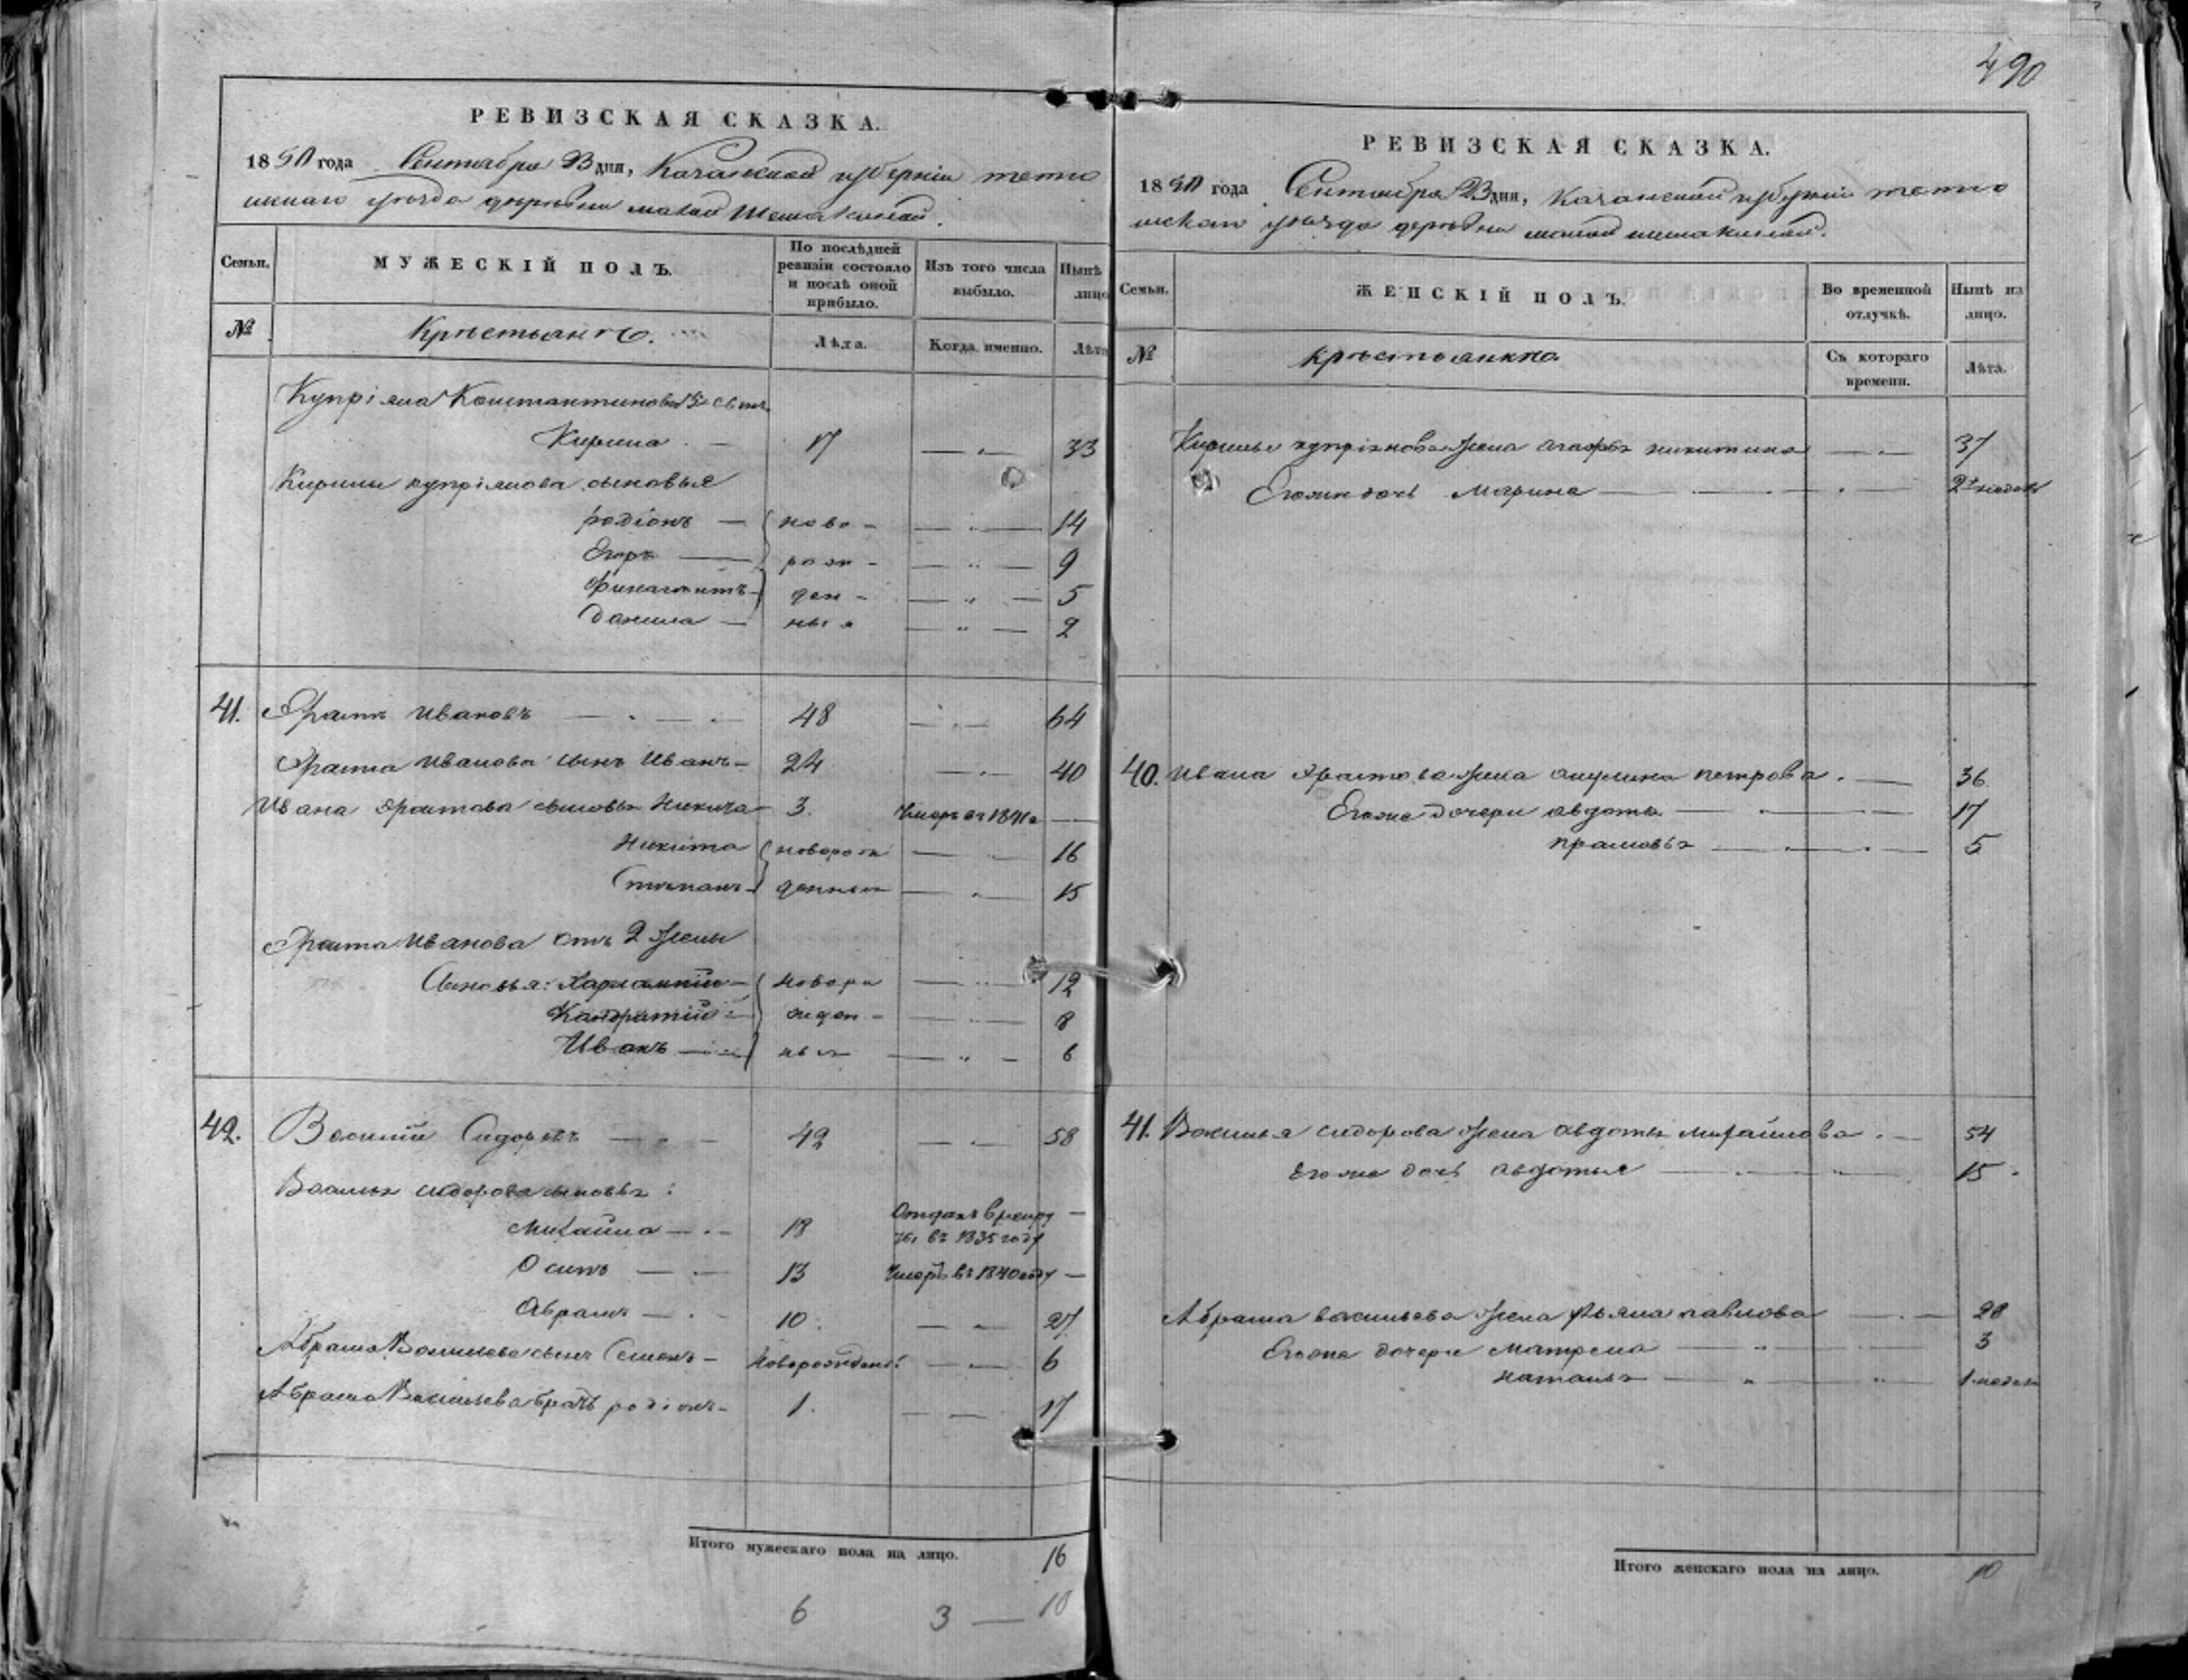 490
РЕВИЗСКАЯ СКАЗКА.
1850 года Сентября 23 дня, Казанской губерніи тетю
шскаго уѣзда деревни малой Шемякиной.
Семьи.
МУЖЕСКІЙ ПОЛЪ.
По послѣдней ревизіи состояло и послѣ оной прибыло.
Изъ того числа выбыло.
Нынѣ лицо
№
Крѣстьянъ.
Лѣта.
Когда именно.
Лѣта
Купріяна Константинова сынъ
Кирила 17 33
Кирилы купріянова сыновья
родіонъ — ново - 14
Егоръ — рож - 9
ден - 5
Данила — ныя 2
41. Ивановъ 48 64
Иванова сынъ Иванъ 24 40
Ивана сыновья 3. Умеръ въ 1841 г
Никита новорож 16
Степанъ денныя 15
Иванова отъ 2 жены
Сыновья: Харлампій новоро 12
Кандратій жден - 8
Иванъ ныя 6
42. Василій Сидоровъ 42 58
Василья сидорова сыновья:
Михайла 18 Отданъ в рекру
ты въ 1835 году
Осипъ 13 Умеръ въ 1840 году
Абрамъ 10. 27
Абрама Васильева сынъ Семенъ новорожденъ 6
Абрама Васильева братъ родіонъ 1. 17
Итого мужескаго пола на лицо. 16
6 3 — 10
РЕВИЗСКАЯ СКАЗКА.
1850 года Сентября 23 дня, Казанской губерніи тетю
шскаго уѣзда деревни малой шемякиной.
Семьи.
ЖЕНСКІЙ ПОЛЪ.
Во временной отлучкѣ.
Нынѣ на лицо.
№
крѣстьянкъ
Съ котораго времени.
Лѣта.
Кирилы купріянова жена агафья никитина 37
Егоже дочь Марина
40. Ивана жена акулина петрова. 36
Егоже дочери авдотья 17
5
41. Василья сидорова жена авдотья михайлова. 54
Егоже дочь авдотья 15
Абрама васильева жена павлова 28
Егоже дочери матрена 3
наталья 1 недел
Итого женскаго пола на лицо. 10